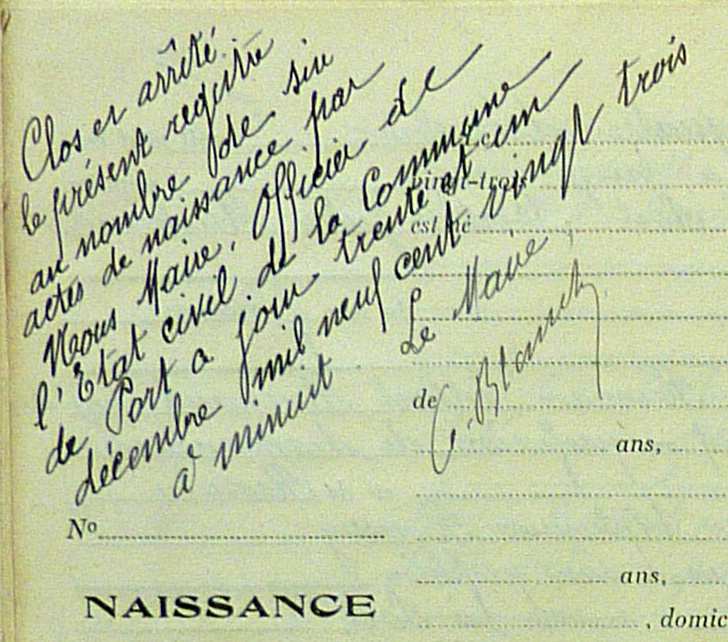 Clos et arrêté
le présent registre
au nombre de six
actes de naissance par
Nous Maire, Officier de
l'Etat civil de la Commune
de Port a jour trente et un
décembre mil neuf cent vingt trois
à minuit
Le Maire,
C. Blanch
est né
de
ans,
Nº
ans,
NAISSANCE
, domic